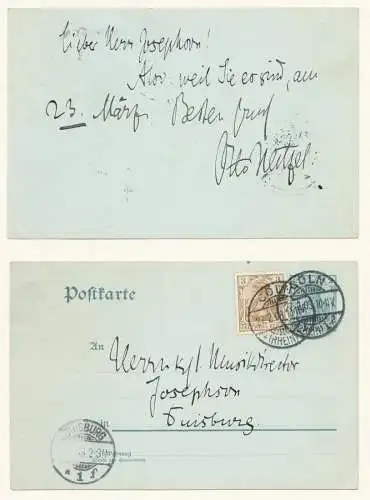 Lieber Herr Josephson!
Also weil Sie es sind, am
23. März. Besten Gruß
Otto Neitzel.
3
CÖLN
KÖLN
Postkarte
(RHEIN)
An
Herrn kgl. Musikdirector
Josephson
in Duisburg.
DUISBURG
Wohnung
* 1 f